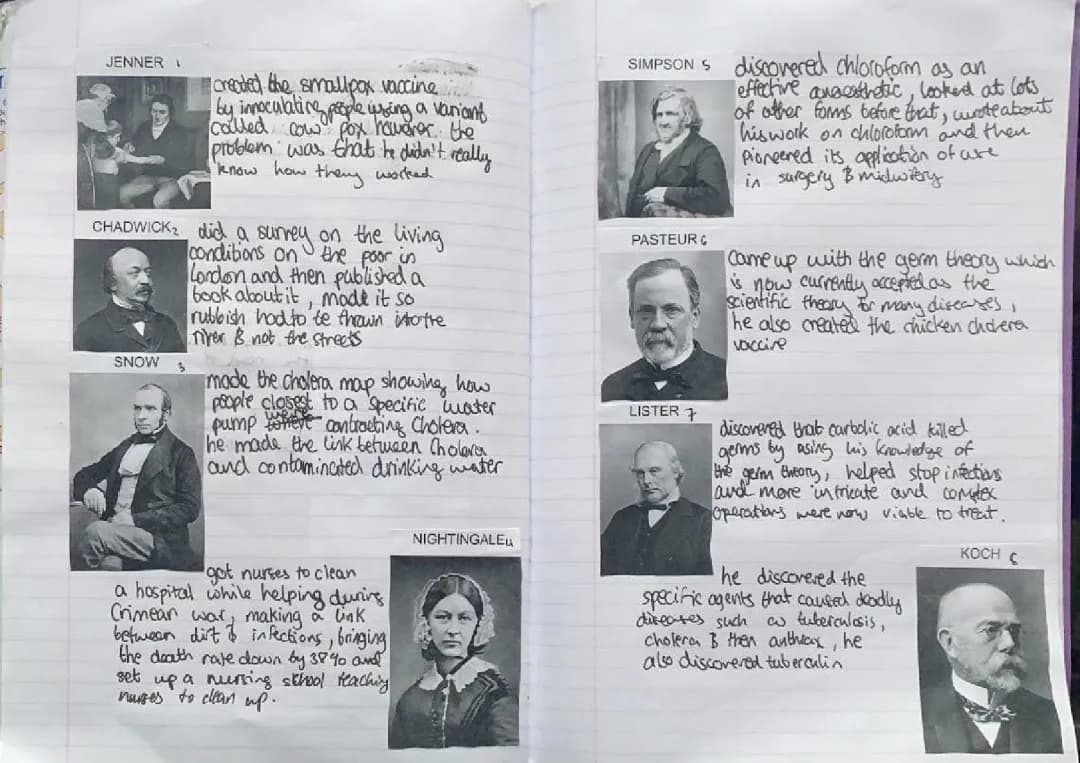 JENNER 1
created the smallpox vaccine
by innoculating people using a variant
called cow pox however the
problem was that he didn't really
know how they worked
CHADWICK 2
did a survey on the living
conditions on the poor in
London and then published a
book about it, made it so
rubbish had to be thrown into the
river & not the streets
SNOW 3
made the cholera map showing how
people closest to a specific water
pump were contracting cholera.
he made the link between cholera
and contaminated drinking water
NIGHTINGALE 4
got nurses to clean
a hospital while helping during
Crimean war, making a link
between dirt & infections, bringing
the death rate down by 38% and
set up a nursing school teaching
nurses to clean up.
SIMPSON 5
discovered chloroform as an
effective anaesthetic, looked at lots
of other forms before that, wrote about
his work on chloroform and then
pioneered its application of use
in surgery & midwifery
PASTEUR 6
came up with the germ theory which
is now currently accepted as the
scientific theory for many diseases,
he also created the chicken cholera
vaccine
LISTER 7
discovered that carbolic acid killed
germs by using his knowledge of
the germ theory, helped stop infections
and more intricate and complex
operations were now viable to treat.
KOCH 8
he discovered the
specific agents that caused deadly
diseases such as tuberculosis,
cholera & then anthrax, he
also discovered tuberculin